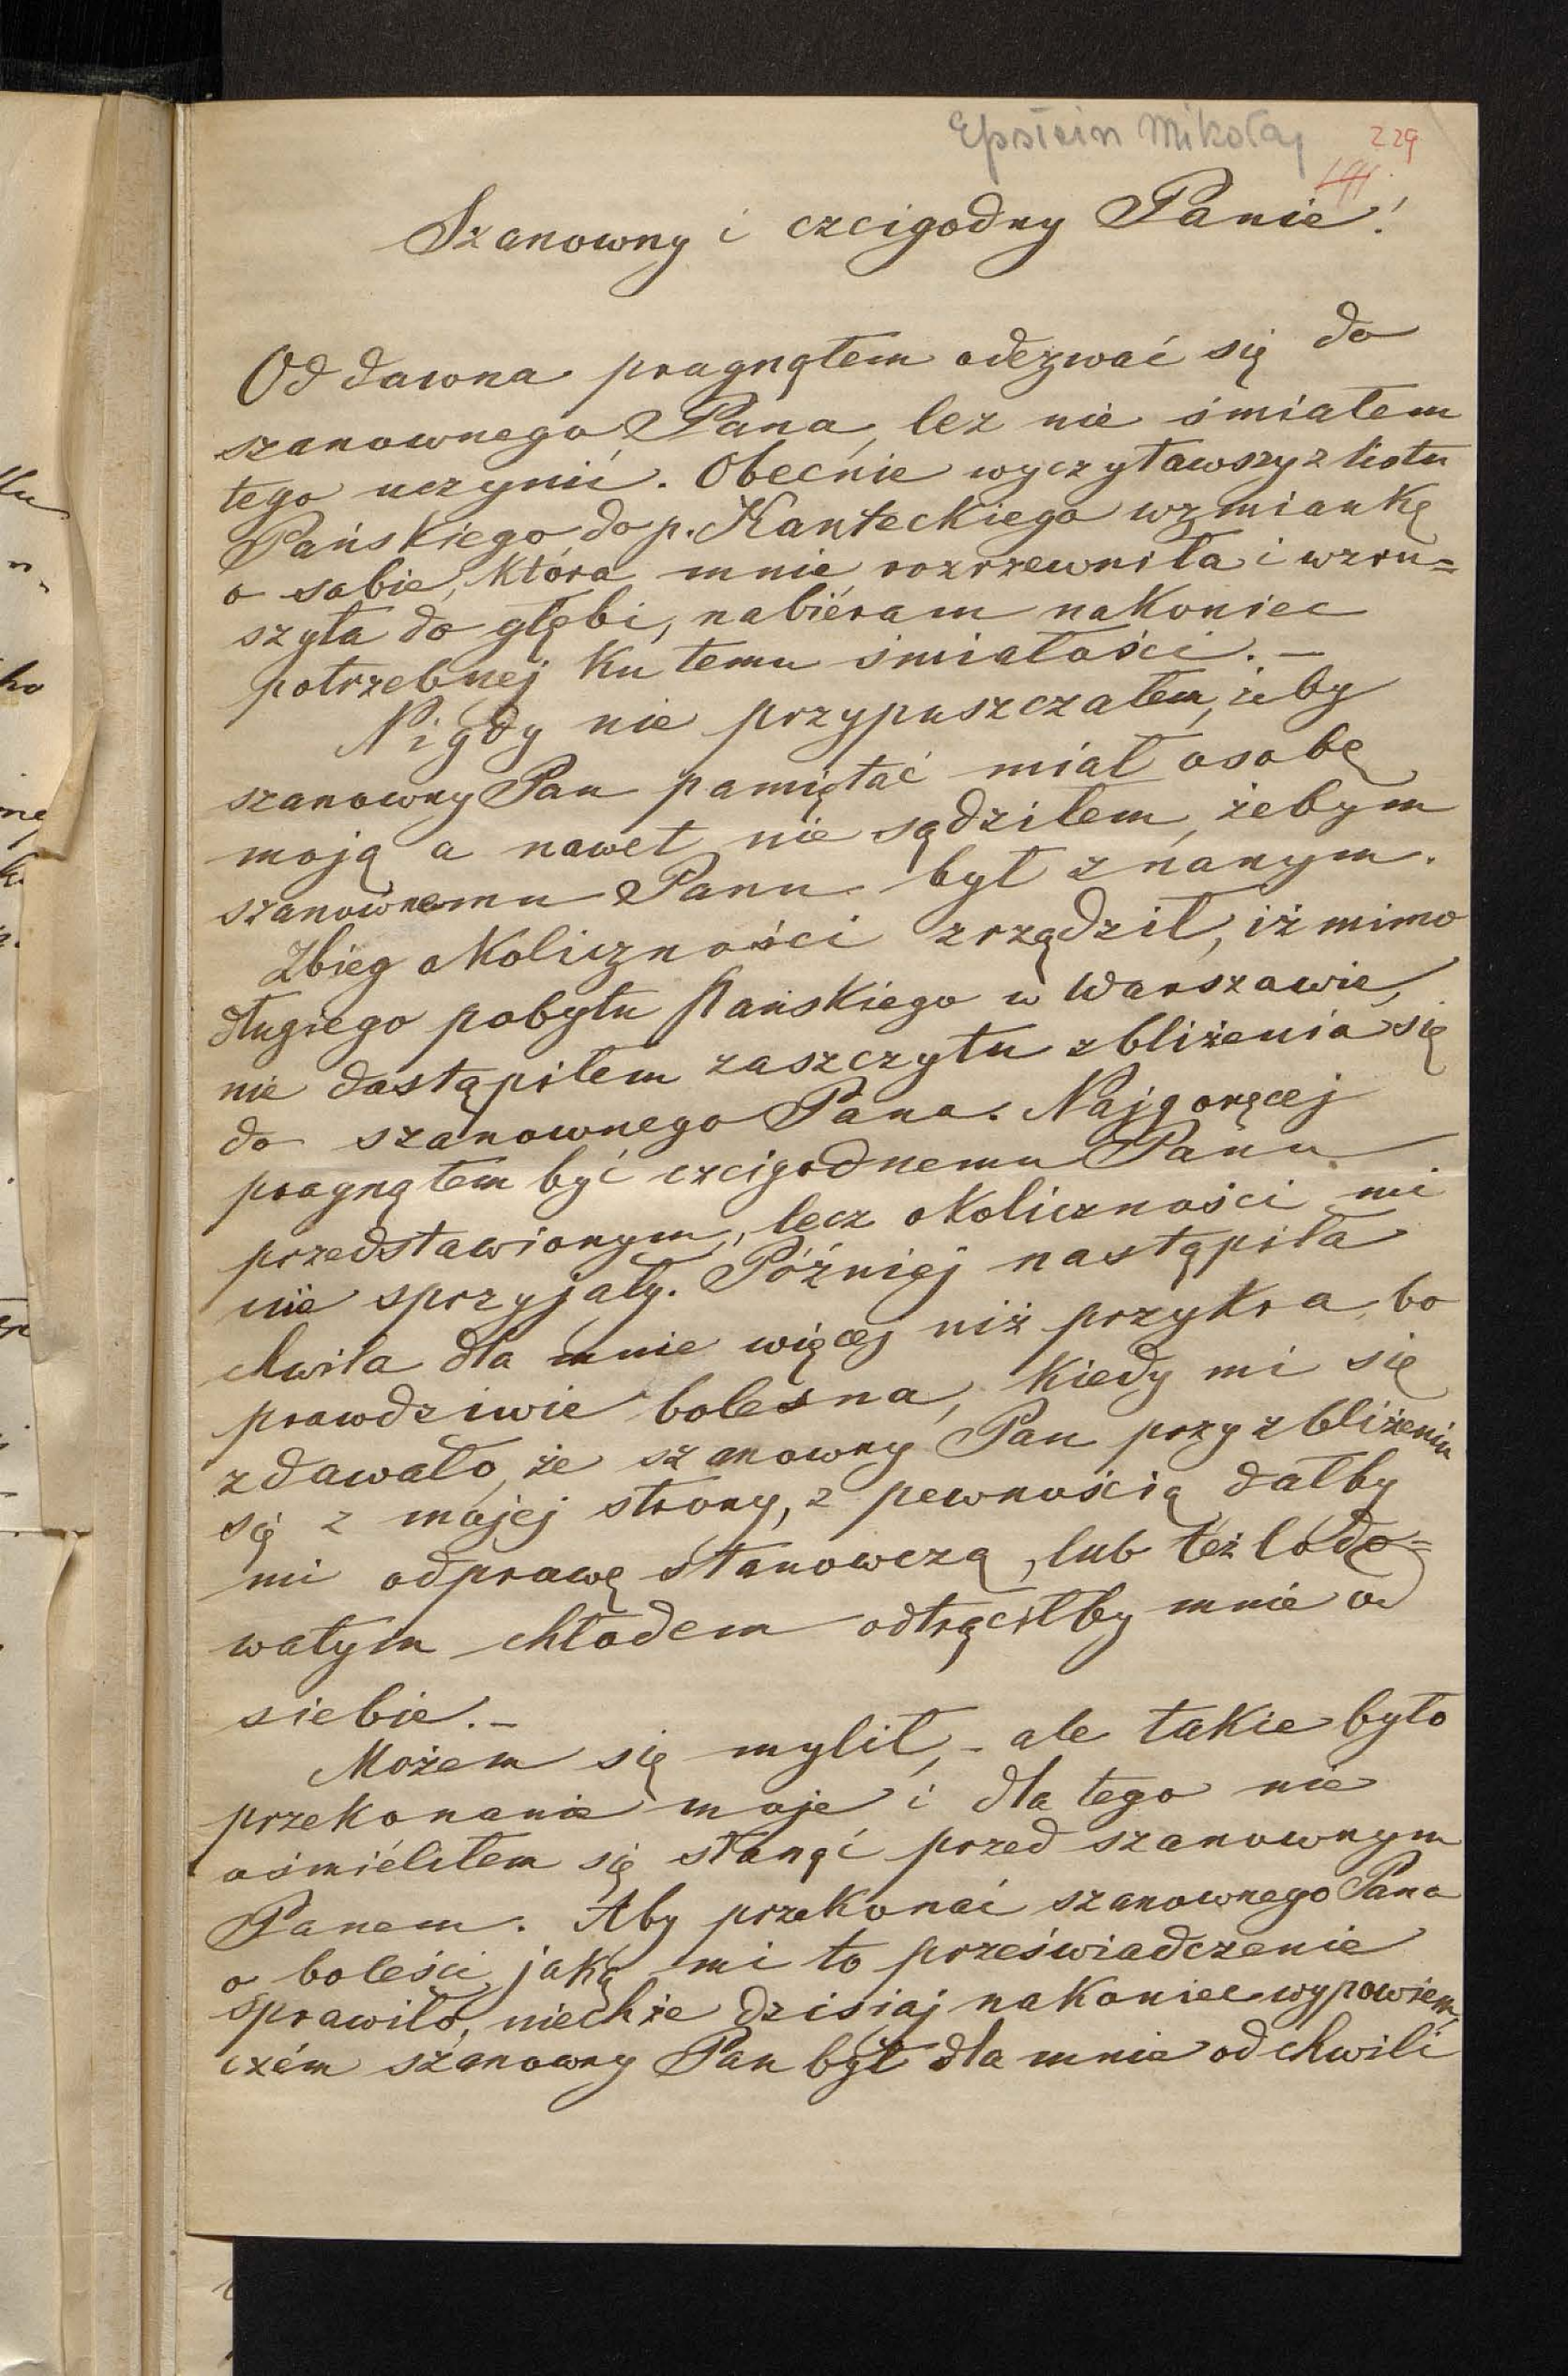 Epstein Mikołaj 229
Szanowny i czcigodny Panie!
Od dawna pragnąłem odezwać się do
szanownego Pana, lez nie śmiałem
tego uczynić. Obecnie wyczytawszy z listu
Pańskiego do p. Kanteckiego wzmiankę
o sobie, która mnie rozrzewniła i wzru=
szyła do głębi, nabiéram nakoniec
potrzebnej ku temu śmiałości. –
Nigdy nie przypuszczałem, żeby
szanowny Pan pamiętać miał osobę
moją a nawet nie sądziłem, żebym
szanownemu Panu był znanym.
Zbieg okoliczności zrządził, iż mimo
długiego pobytu Pańskiego w Warszawie,
nie dostąpiłem zaszczytu zbliżenia się
do szanownego Pana. Najgoręcej
pragnąłem być czcigodnemu Panu
przedstawionym, lecz okoliczności mi
nie sprzyjały. Później nastąpiła
chwila dla mnie więcej niż przykra, bo
prawdziwie bolesna, kiedy mi się
zdawało, że szanowny Pan przy zbliżeniu
się z mojej strony, z pewnością dałby
mi odprawę stanowczą, lub też lodo=
watym chłodem odtrąciłby mnie od
siebie. –
Możem się mylił, – ale takie było
przekonanie moje i dla tego nie
ośmiéliłem się stanąć przed szanownym
Panem. Aby przekonać szanownego Pana
o boleści, jaką mi to przeświadczenie
sprawiło, niechże dzisiaj nakoniec wypowiem,
czém szanowny Pan był dla mnie od chwili